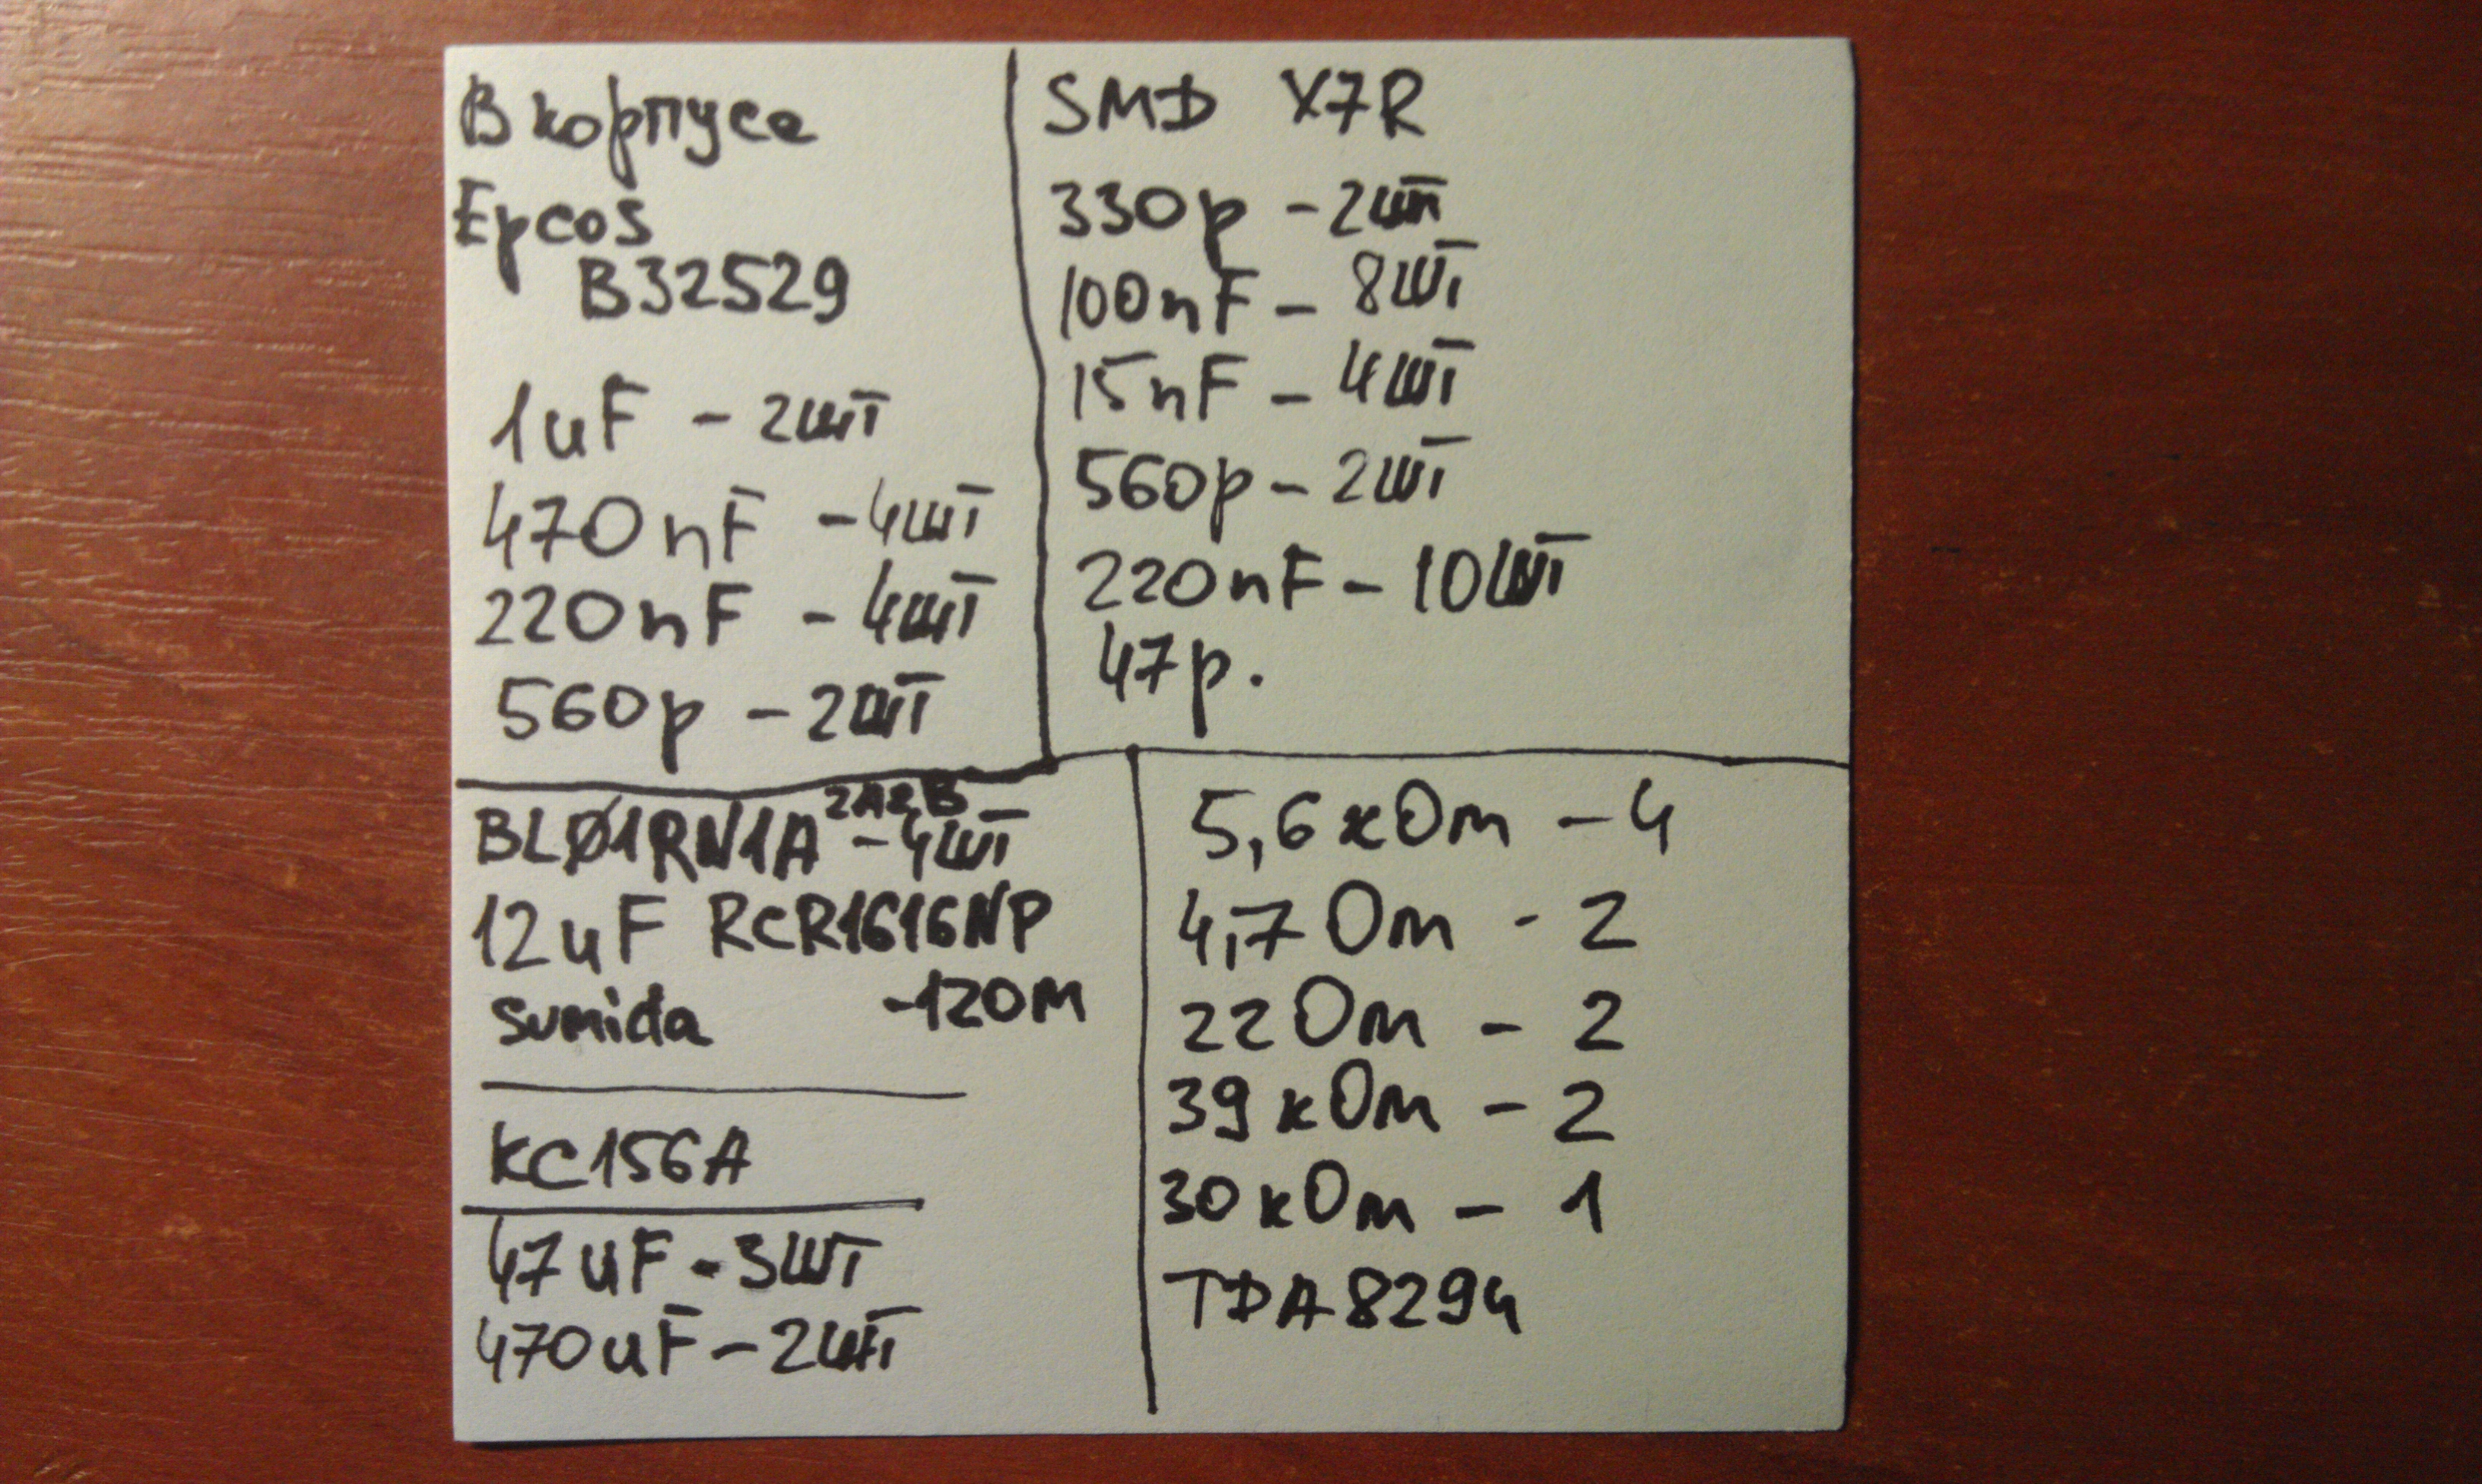 В корпусе
Epcos
B32529
1uF - 2шт
470nF - 4шт
220nF - 4шт
560p - 2шт
SMD X7R
330p - 2шт
100nF - 8шт
15nF - 4шт
560p - 2шт
220nF - 10шт
47p.
BLØ1RN1A2A2B - 4шт
12uF RCR1616NP
sumida -120M
KC156A
47uF - 3шт
470uF - 2шт
5,6 кОм - 4
4,7 Ом - 2
22 Ом - 2
39 кОм - 2
30 кОм - 1
TDA8294